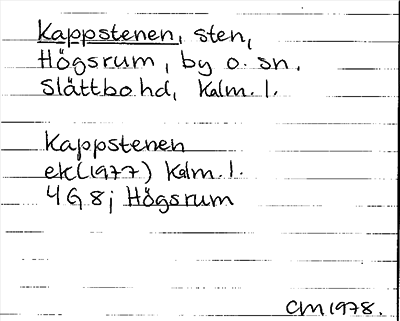 Kappstenen, sten,
Högsrum, by o. sn.
Slättbo hd, Kalm. l.
Kappstenen
ek (1977) Kalm. l.
4 G 8 j Högsrum
CM 1978.